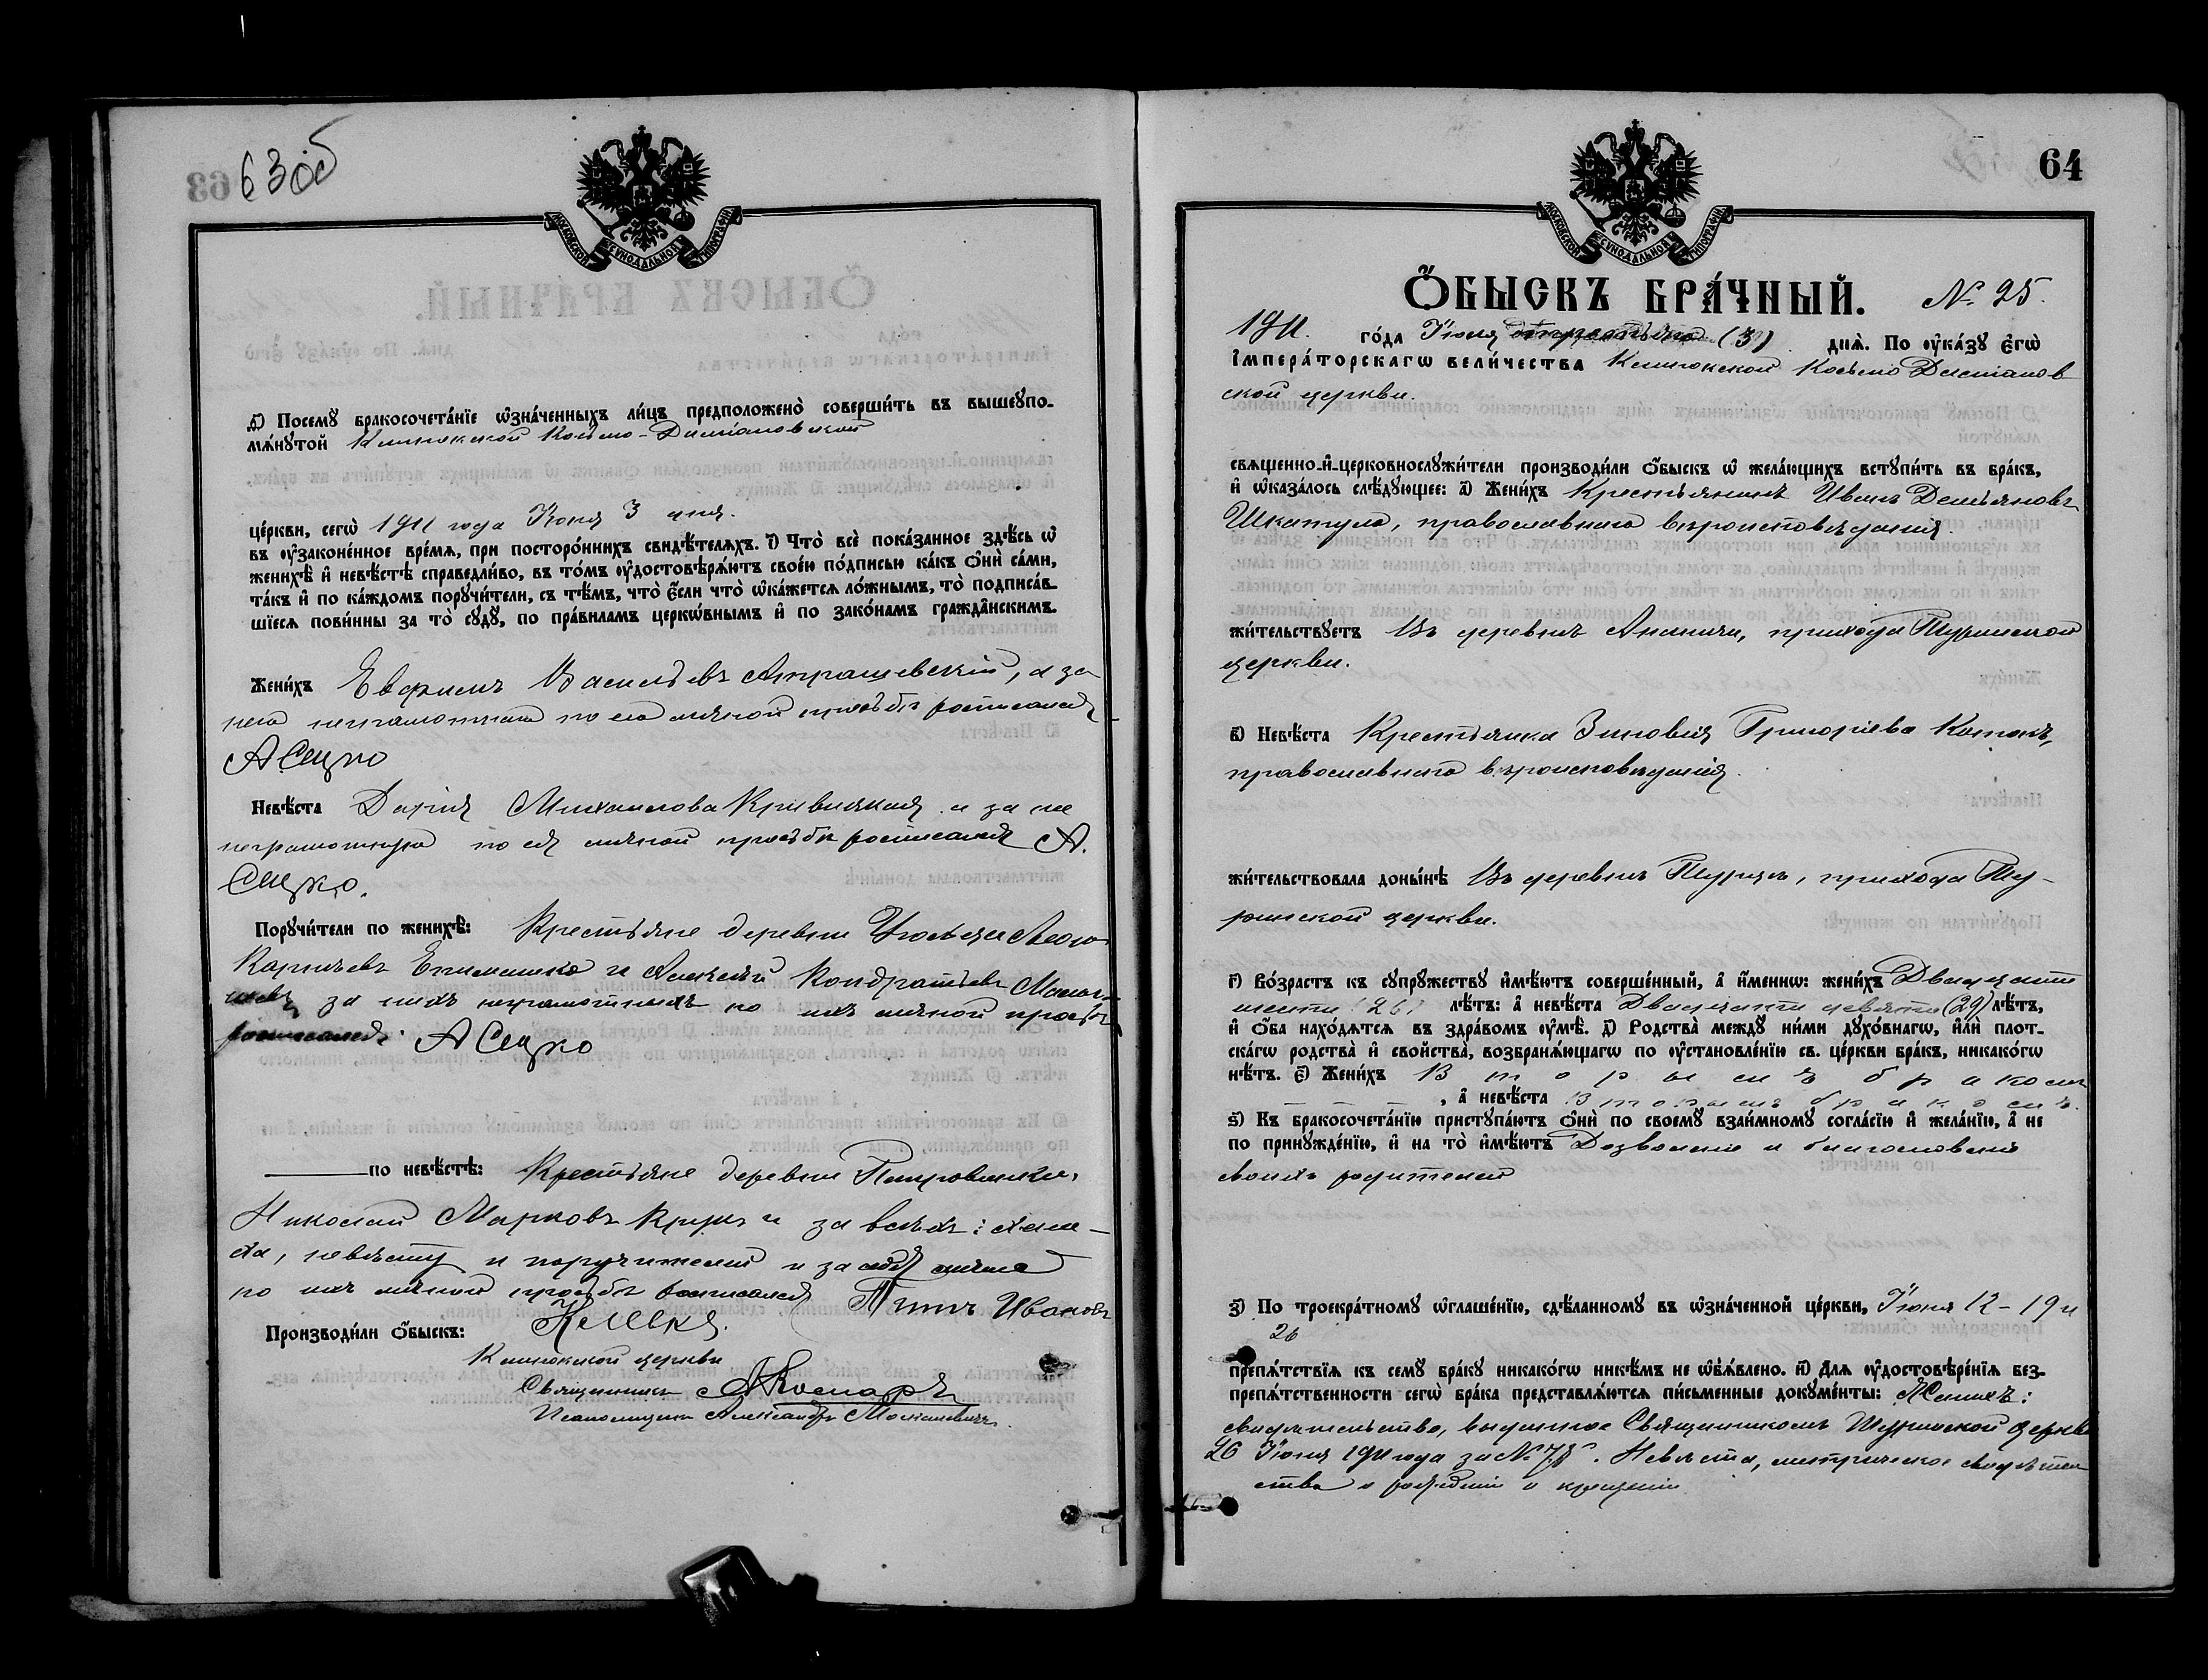 63об
МОСКОВСКОЙ СѴНОДАЛЬНОЙ ТИПОГРАФІИ
д҃і) Посемꙋ бракосочета́нїе ѡзна́ченныхъ ли́цъ предположено̀ соверши́ть въ вышеꙋпо-
мѧ́нꙋтой Космо-Даміановской
це́ркви, сегѡ̀ 1911 года Іюня 3 дня.
въ ᲂу҆зако́не́нное вре́мѧ, при посторо́ннихъ свидѣ́телѧхъ. і҃) Что̀ всѐ пока́занное здѣ́сь ѡ
женихѣ̀ и҆ невѣ́стѣ справедли́во, въ то́мъ ᲂу҆достовѣрѧ́ютъ свое́ю по́дписью ка́къ ѻ҆нѝ са́ми,
та́къ и҆ по ка́ждомъ порꙋчи́тели, съ тѣ́мъ, что̀ є҆́сли что̀ ѡ҆ка́жетсѧ ло́жнымъ, то̀ подписа́в-
шїесѧ пови́нны за то̀ сꙋдꙋ̀, по пра́виламъ церкѡ́внымъ и҆ по зако́намъ гражда̂нскимъ.
Жени́хъ Евфимъ Васильевъ Апрашевскій, а за
него неграмотнаго по его личной просьбѣ росписался
А Сицко
Невѣ́ста Дарія Михаилова Кривицкая а за нее
неграмотную по ея личной просьбѣ росписался А.
Сицко.
Порꙋчи́тели по женихѣ̀: Крестьяне деревни
и Алексѣй Кондратьевъ
за нихъ неграмотныхъ по ихъ личной просьбѣ
росписался А Сицко
по невѣ́стѣ: Крестьяне деревни
Николай Марковъ и за всѣхъ: жени-
ха, невѣсту и поручителей и за себя лично
по ихъ личной просьбѣ росписался Иванов
Производи́ли ѻ҆́быскъ:
церкви
Священникъ
Псаломщикъ Александръ
64
МОСКОВСКОЙ СѴНОДАЛЬНОЙ ТИПОГРАФІИ
Ѻ҆́БЫСКЪ БРА́ЧНЫЙ. № 25.
1911. го́да Іюля (3) днѧ̀. По ᲂу҆ка́зꙋ є҆гѡ̀
І҆мпера́торскагѡ вели́чества Косьмо Даміанов
ской церкви.
свѧщенно-и҆-церковнослꙋжи́тели производи́ли ѻ҆́быскъ ѡ҆ жела́ющихъ встꙋпи́ть въ бра́къ,
и҆ ѡ҆каза́лось слѣ́дꙋющее: а҃) Жени́хъ Крестьянинъ Иванъ Демьяновъ
Шкатула, православнаго вѣроисповѣданія.
жи́тельствꙋетъ Въ деревнѣ Ананичи, прихода Туринской
церкви.
в҃) Невѣ́ста Крестьянка Зиновія Григоріева Котокъ,
православнаго вѣроисповѣданія.
жи́тельствовала доны́нѣ Въ деревнѣ Туринъ, прихода Ту-
ринской церкви.
г҃) Во́зрастъ къ сꙋпрꙋ́жествꙋ и҆мѣ́ютъ соверше́нный, а҆ и҆́меннѡ: жени́хъ Двадцати
шести (26) лѣ́тъ: а҆ невѣ́ста Двадцати девяти (29) лѣ́тъ,
и҆ ѻ҆́ба нахо́дѧтсѧ въ здра́вомъ ᲂу҆мѣ̀. д҃) Родства̀ междꙋ ни́ми дꙋхо́внагѡ, и҆лѝ плот-
ска́гѡ родства̀ и҆ свойства̀, возбранѧ́ющагѡ по ᲂу҆становле́нїю св. це́ркви бра́къ, никако́гѡ
нѣ́тъ. є҃) Жени́хъ Вторымъ бракомъ
, а҆ невѣ́ста Вторымъ бракомъ.
ѕ҃) Къ бракосочета́нїю пристꙋпа́ютъ ѻ҆нѝ по своемꙋ̀ взаи́мномꙋ согла́сїю и҆ жела́нїю, а҆ не
по принꙋжде́нїю, и҆ на то̀ и҆мѣ́ютъ Дозволеніе и благословеніе
своихъ родителей
з҃) По троекра́тномꙋ ѡ҆глаше́нїю, сдѣ́ланномꙋ въ ѡ҆зна́ченной це́ркви, Іюня 12 - 19 и
26
препѧ́тствїѧ къ семꙋ̀ бра́кꙋ никако́гѡ никѣ́мъ не ѡ҆б̾ѧ́влено. и҃) Длѧ ᲂу҆достовѣре́нїѧ без-
препѧ́тственности сегѡ̀ бра́ка представлѧ́ютсѧ пи́сьменные докꙋме́нты: Женихъ:
свидѣтельство, выданное Священникомъ Туринской церкви
26 Іюня 1911 года за № 78. Невѣста, метрическое свидѣтель
ство о рожденіи и крещеніи